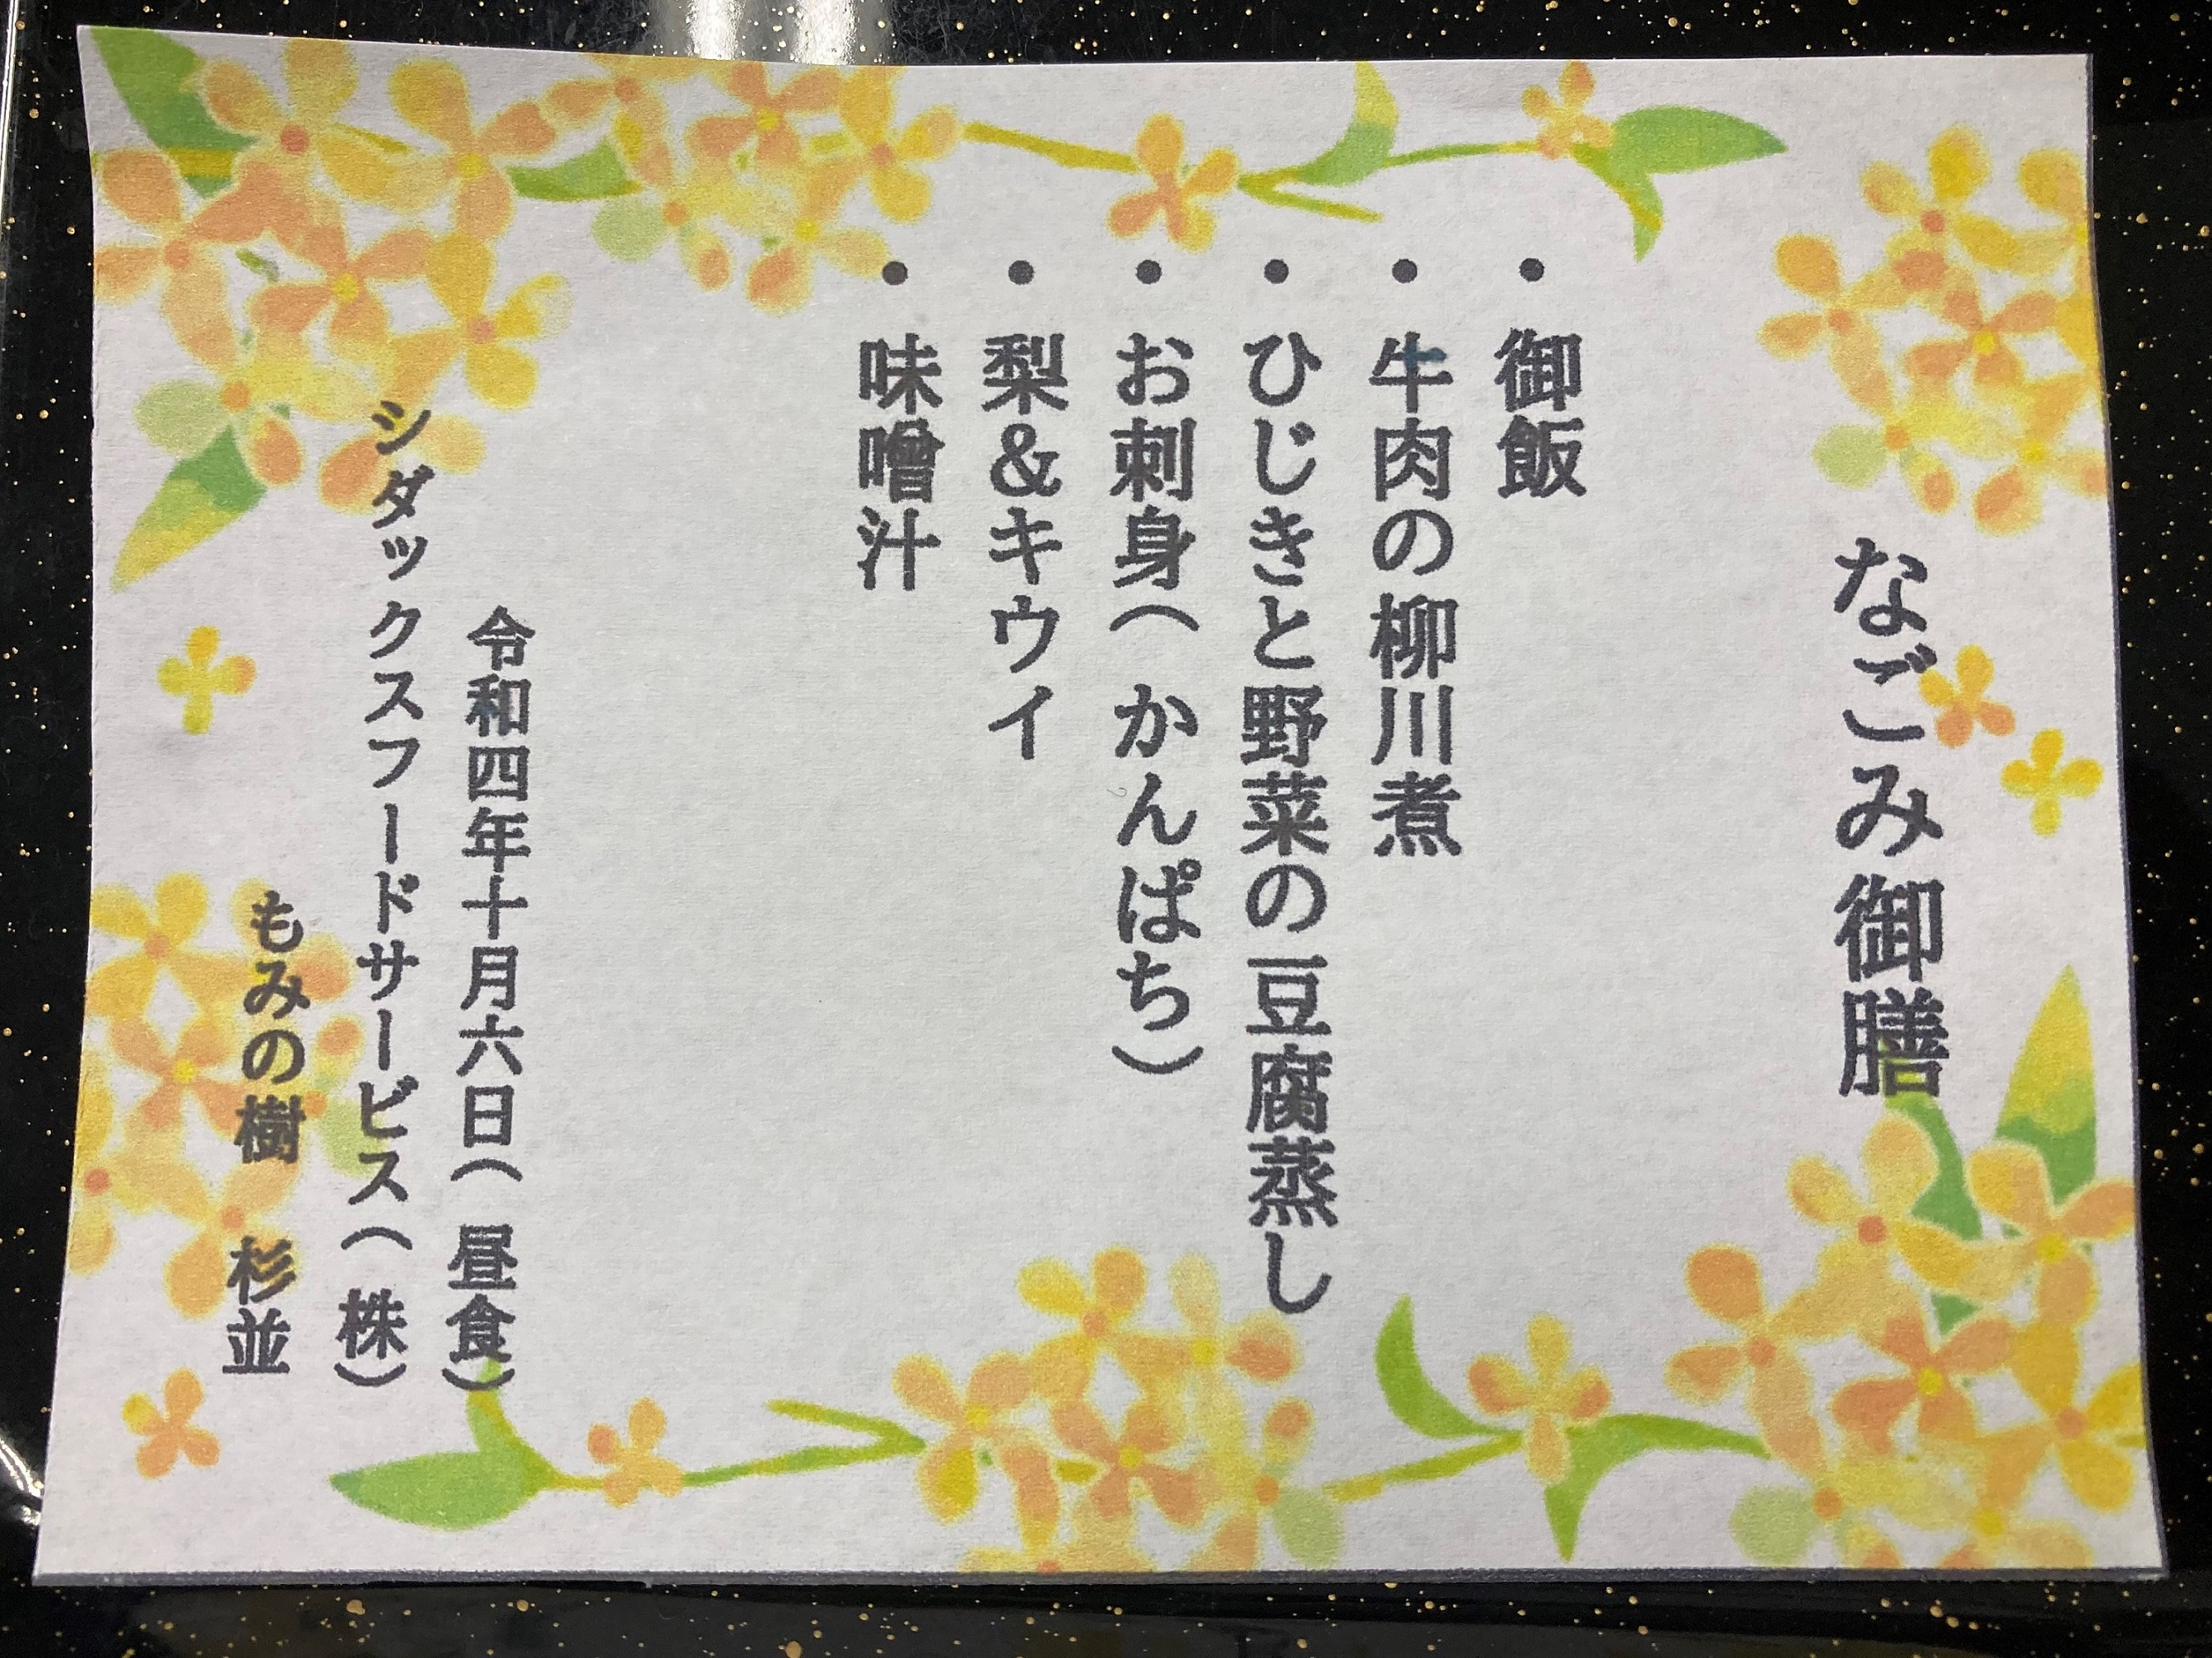 なごみ御膳
・御飯
・牛肉の柳川煮
・ひじきと野菜の豆腐蒸し
・お刺身(かんぱち)
・梨&キウイ
・味噌汁
令和四年十月六日(昼食)
シダックスフードサービス(株)
もみの樹 杉並